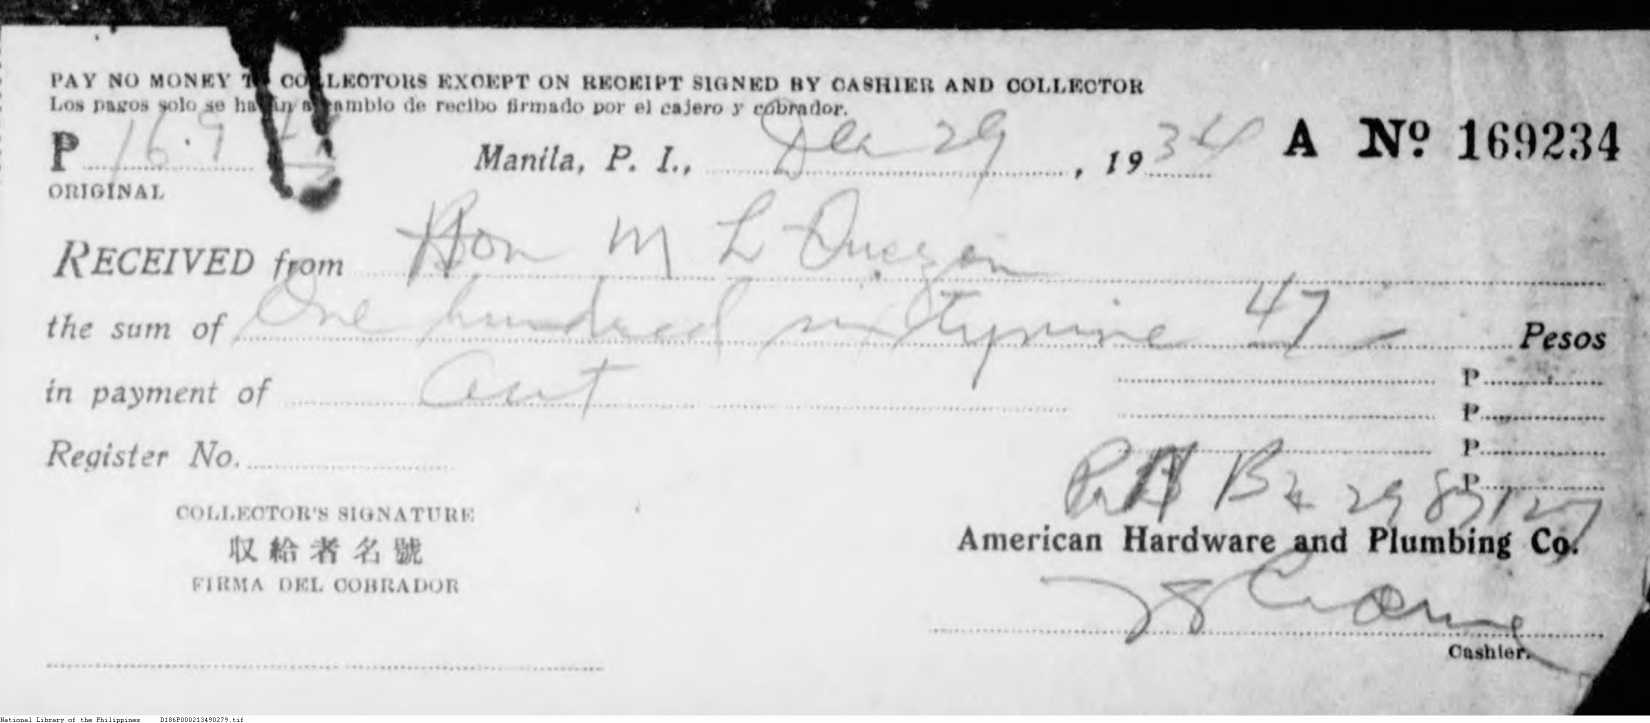 PAY NO MONEY TO COLLECTORS EXCEPT ON RECEIPT SIGNED BY CASHIER AND COLLECTOR
Los pagos solo se harán a cambio de recibo firmado por el cajero y cobrador.
P 169 47 Manila, P. I., Dec 29, 1934 A No 169234
ORIGINAL
RECEIVED from Hon M L Quezon
the sum of One hundred sixtynine 47 Pesos
in payment of acct P
P
Register No. P
P
B 298127
COLLECTOR'S SIGNATURE
収給者名號
FIRMA DEL COBRADOR
American Hardware and Plumbing Co.
Cashier.
National Library of the Philippines D186P000213490279.tif